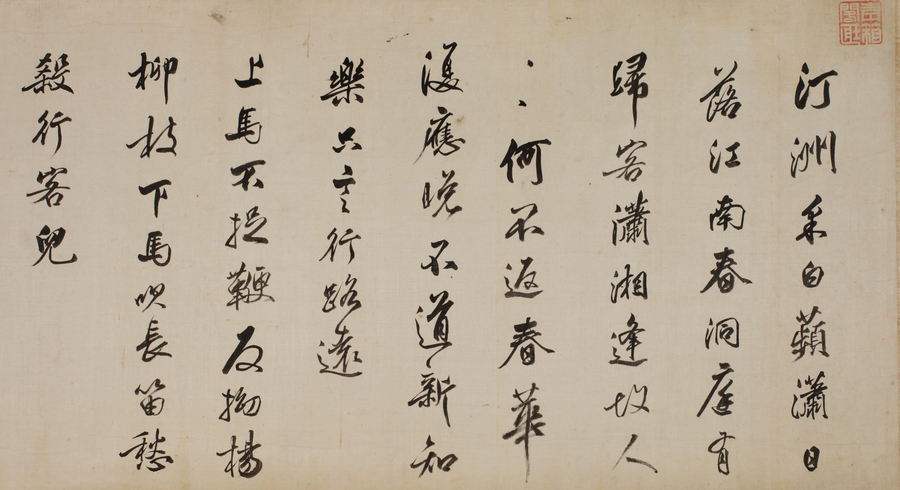 汀洲采白蘋瀟日
落江南春洞庭有
歸客瀟湘逢故人
〻〻何不返春華
復應晚不道新知
樂只言行路遠
上馬不捉鞭反拗楊
柳枝下馬吹長笛愁
殺行客兒